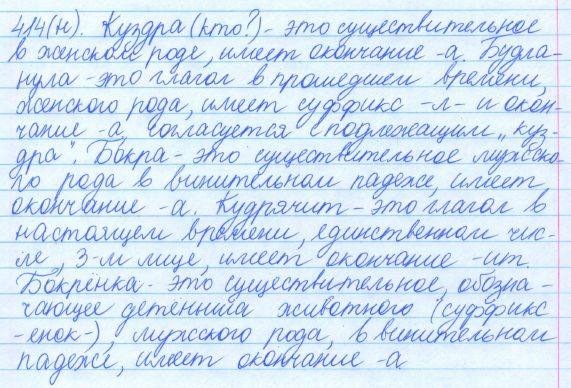 414(н). Куздра (кто?) - это существительное
в женском роде, имеет окончание -а. Будла-
нула - это глагол в прошедшем времени,
женского рода, имеет суффикс -л- и окон-
чание -а, согласуется с подлежащим „куз-
дра". Бокра - это существительное мужско-
го рода в винительном падеже, имеет
окончание -а. Кудрячит - это глагол в
настоящем времени, единственном чис-
ле, 3-м лице, имеет окончание -ит.
Бокрёнка - это существительное, обозна-
чающее детеныша животного (суффикс
-енок-), мужского рода, в винительном
падеже, имеет окончание -а